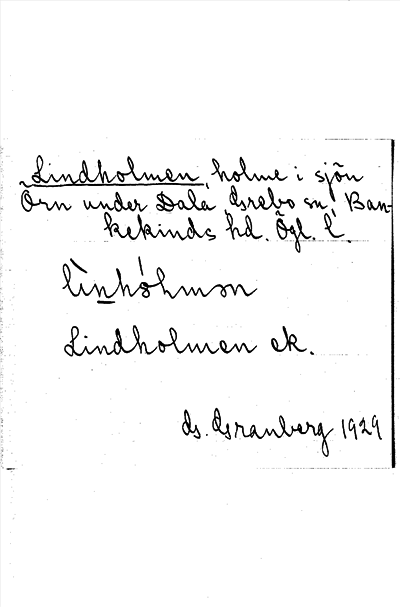 Lindholmen, holme i sjön
Örn under Dala Grebo sn, Ban-
kekinds hd. Ögl. l.
lìnhólmən
Lindholmen ek.
G. Granberg 1929